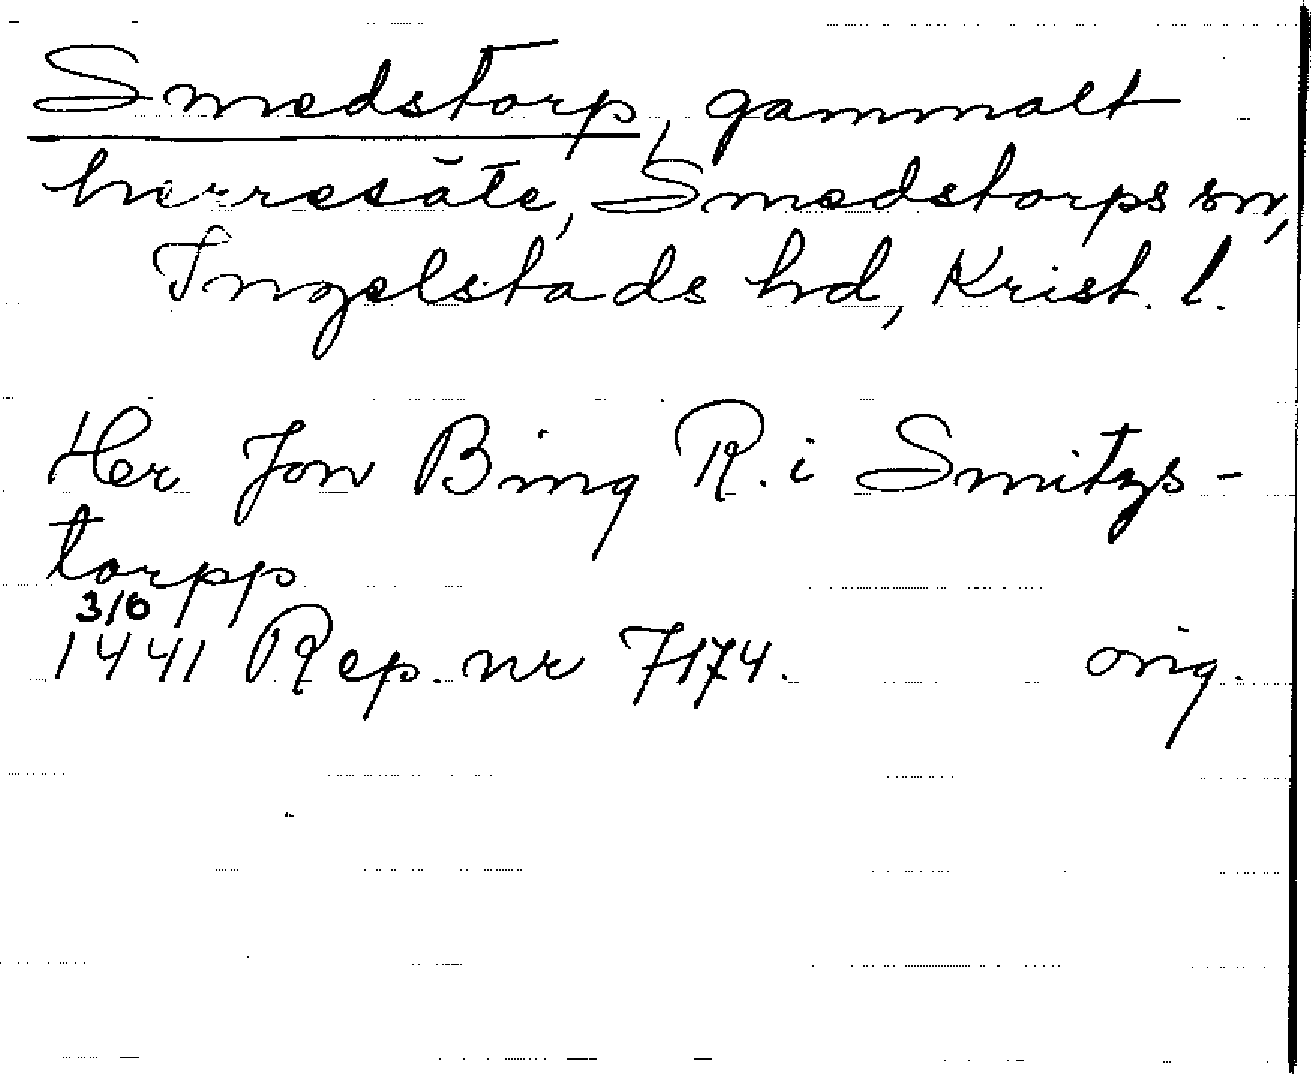 Smedstorp, gammalt
herresäte, Smedstorps sn,
Ingelstads hd, Krist. l.
Her Jon Bing R. i Smitzs-
torpp
3/6
1441 Rep. nr 7174. orig.